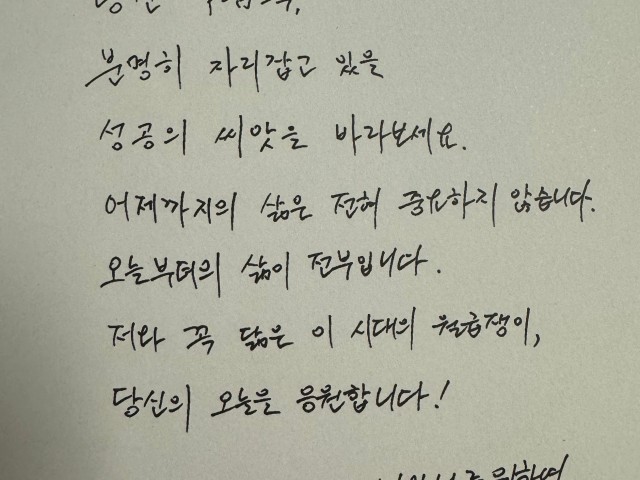 분명히 자리잡고 있을
성공의 씨앗을 바라보세요.
어제까지의 삶은 전혀 중요하지 않습니다.
오늘부터의 삶이 전부입니다.
저와 꼭 닮은 이 시대의 월급쟁이,
당신의 오늘을 응원합니다!